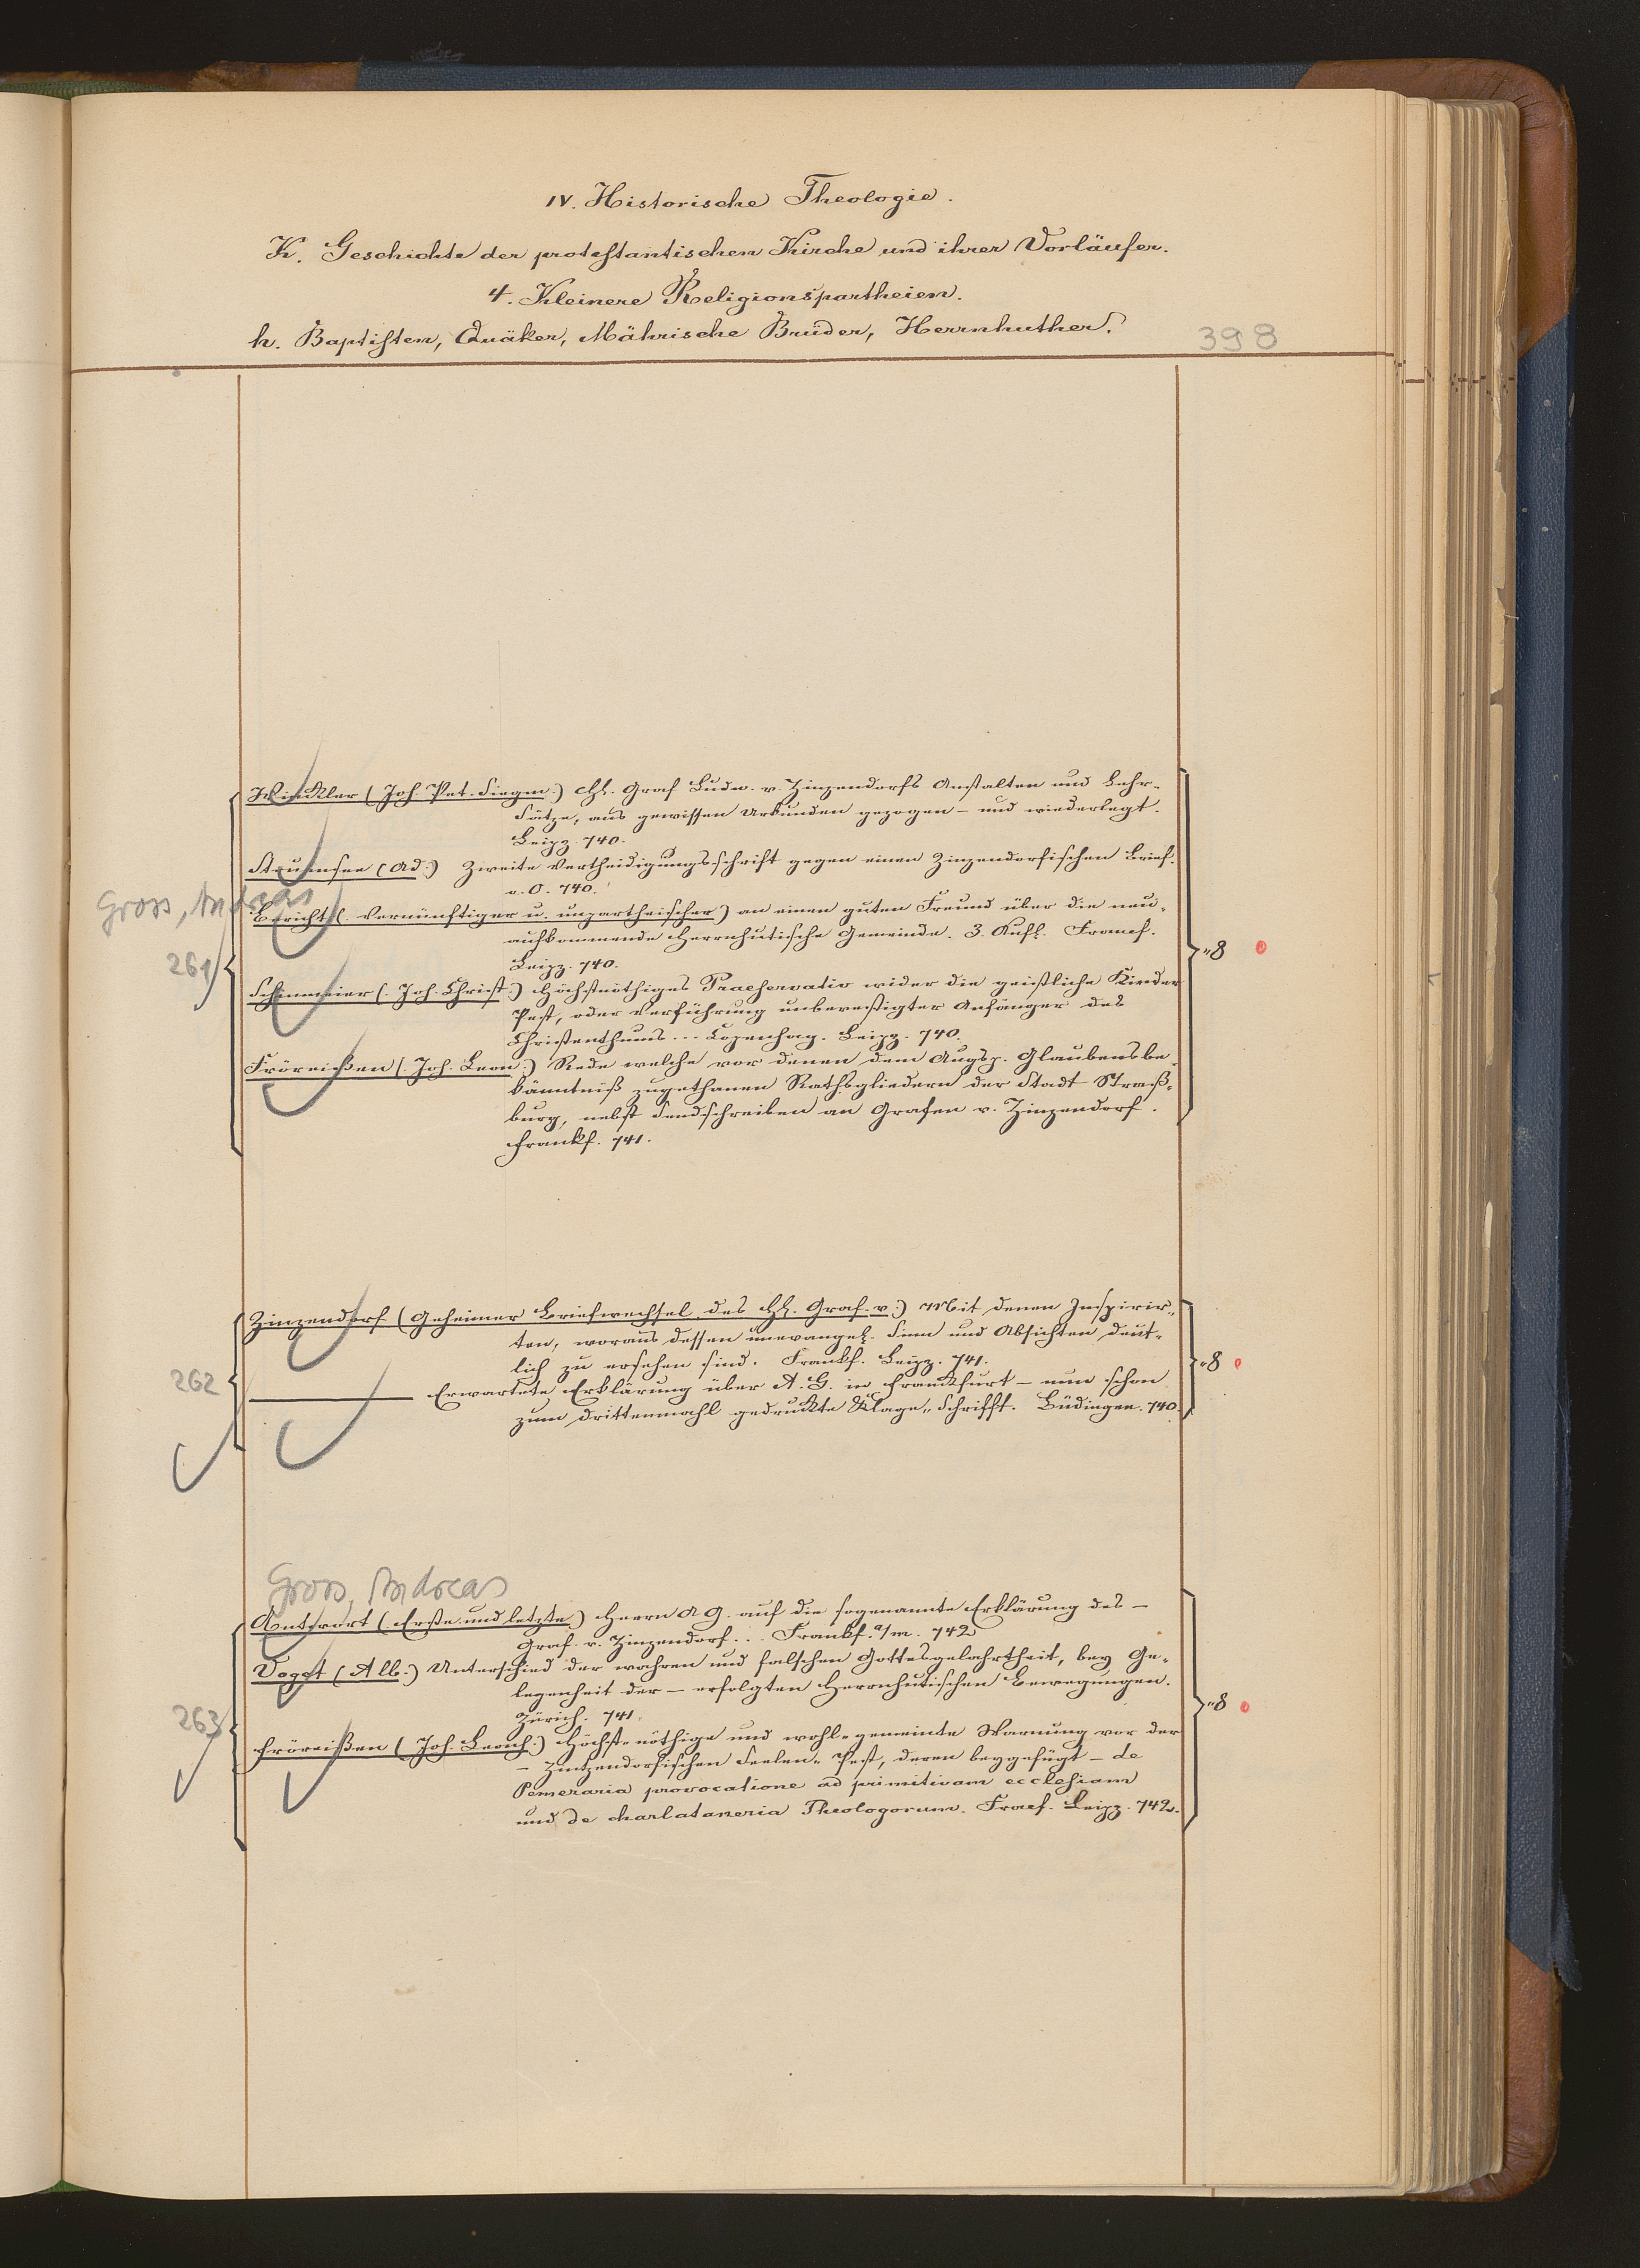 IV. Historische Theologie.
K. Geschichte der protestantischen Kirche und ihrer Vorläufer.
4. Kleinere Religionspartheien.
h. Baptisten, Quäker, Mährische Brüder, Herrnhuther.
398
Winckler (Joh. Pet. Siegm.) Hh. Graf Ludw. v. Zinzendorfs Anstalten und Lehr-
Sätze, aus gewissen Urkunden gezogen – und wiederlegt.
Leipz. 740.
Struensee (Ad.) Zweite Vertheidigungsschrift gegen einen Zinzendorfischen Brief.
o. O. 740.
Gross, Andreas
Bericht (Vernünftiger u. unpartheischer) an einen guten Freund über die neu-
aufkommende Herrnhutische Gemeinde. 3. Aufl. Francf.
Leipz. 740.
261
"8
Schinmeier (Joh. Christ.) Höchstnöthiges Praeservativ wider die geistliche Kinder
Pest, oder Verführung unbevestigter Anfänger des
Christenthums... Copenhag. Leipz. 740.
Fröreißen (Joh. Leon.) Rede welche vor denen dem Augsp. Glaubensbe-
känntniß zugethanen Rathsgliedern der Stadt Straß-
burg, nebst Sendschreiben an Grafen v. Zinzendorf.
Frankf. 741.
Zinzendorf (Geheimer Briefwechsel des Hh. Graf. v.) Mit denen Inspirir-
ten, woraus dessen unevangel. Sinn und Absichten deut-
lich zu ersehen sind. Frankf. Leipz. 741.
262
"8
Erwartete Erklärung über A. G. in Franckfurt – nun schon
zum drittenmahl gedruckte Klage-Schrifft. Büdingen. 740.
Gross, Andreas
Antwort (Erste und letzte) Herrn A G. auf die sogenannte Erklärung des –
Graf. v. Zinzendorf... Frankf. a/m. 742
Voget (Alb.) Unterschied der wahren und falschen Gottesgelahrtheit, bey Ge-
legenheit der – erfolgten Herrnhutischen Bewegungen.
Zürich. 741.
263
"8
Fröreißen (Joh. Leonh.) Höchst-nöthige und wohl-gemeinte Warnung vor der
– Zintzendorfischen Seelen-Pest, deren beygefügt – de
Temeraria provocatione ad primitivam ecclesiam
und de charlataneria Theologorum. Fracf. Leipz. 742.